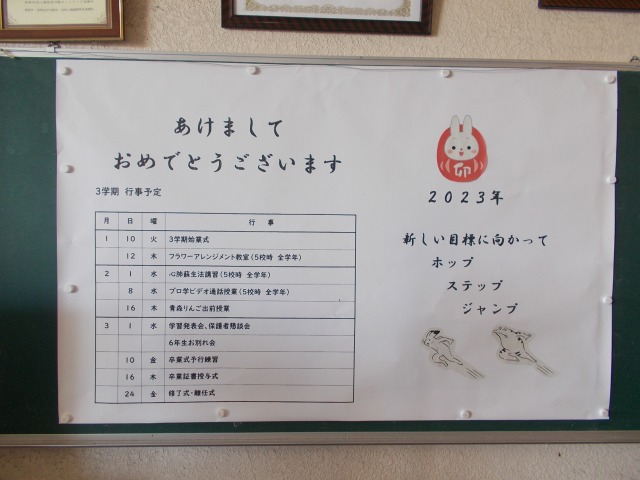 あけまして
おめでとうございます
3学期 行事予定
月 日 曜 行 事
1 10 火 3学期始業式
12 木 フラワーアレンジメント教室(5校時 全学年)
2 1 水 心肺蘇生法講習(5校時 全学年)
8 水 プロ学ビデオ通話授業(5校時 全学年)
16 木 青森りんご出前授業
3 1 水 学習発表会、保護者懇談会
6年生お別れ会
10 金 卒業式予行練習
16 木 卒業証書授与式
24 金 修了式・離任式
卯
2023年
新しい目標に向かって
ホップ
ステップ
ジャンプ